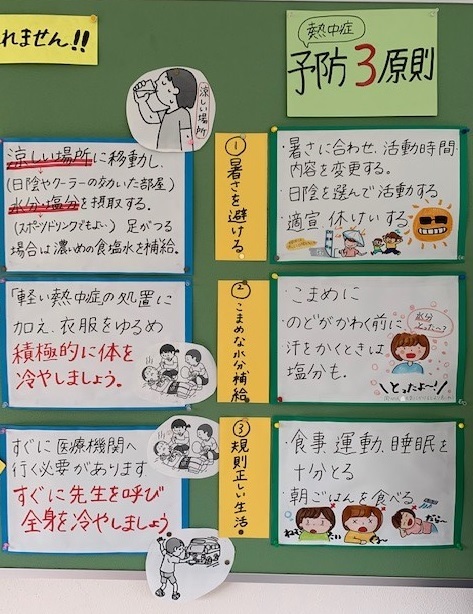 れません!!
熱中症
予防3原則
涼しい場所
涼しい場所に移動し、
(日陰やクーラーの効いた部屋)
水分・塩分を摂取する。
(スポーツドリンクでもよい) 足がつる
場合は濃いめの食塩水を補給。
①暑さを避ける。
・暑さに合わせ、活動時間・
内容を変更する。
・日陰を選んで活動する
・適宜、休けいする
「軽い熱中症の処置に
加え、衣服をゆるめ
積極的に体を
冷やしましょう。
②こまめな水分補給
こまめに
・のどがかわく前に
・汗をかくときは
塩分も.
水分
とったへ?
\とったよ〜!/
すぐに医療機関へ
行く必要があります
すぐに先生を呼び
全身を冷やしましょう
③規則正しい生活。
・食事、運動、睡眠を
十分とる
・朝ごはんを食べる